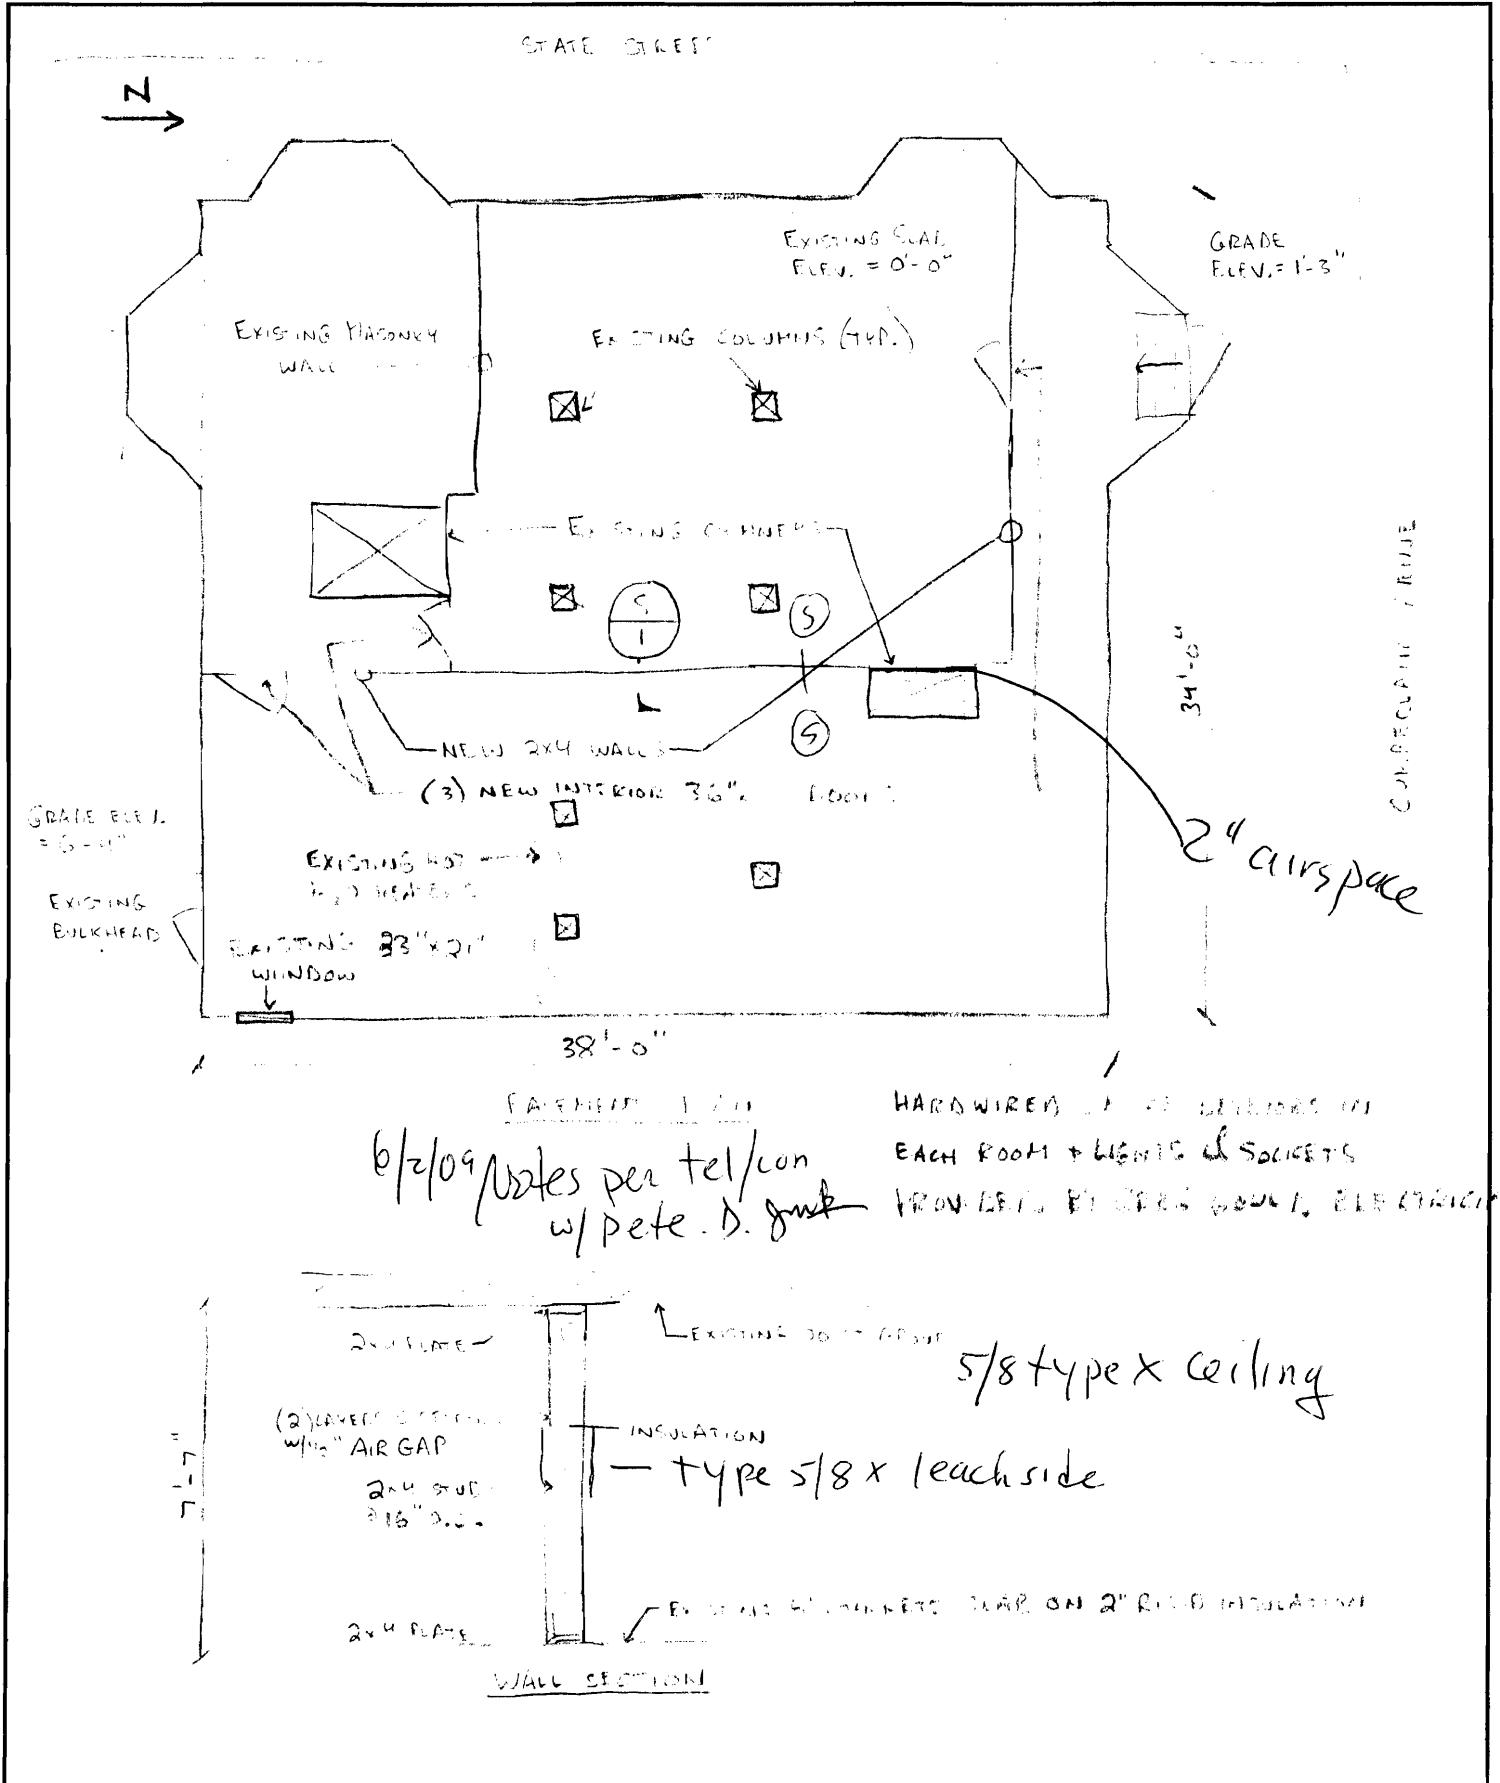 STATE STREET
N
EXISTING SLAB
ELEV. = 0'-0"
GRADE
ELEV. = 1'-3"
EXISTING MASONRY
WALL
EXISTING COLUMNS (TYP.)
EXISTING CHIMNEYS
S
1
S
S
34'-0"
NEW 2x4 WALLS
(3) NEW INTERIOR 36" DOORS
GRADE ELEV.
2" airspace
EXISTING HOT
H2O HEATERS
EXISTING
BULKHEAD
EXISTING 33"x21"
WINDOW
38'-0"
BASEMENT PLAN
HARDWIRED IN
EACH ROOM + LIGHTS & SOCKETS
PROVIDED BY
6/2/09 Notes per tel/con
w/ pete. D.
2x4 PLATE
EXISTING JOIST ABOVE
5/8 type X Ceiling
(2) LAYERS
W/½" AIR GAP
INSULATION
— type 5/8 X 1 each side
7'-7"
2x4 STUD
@16" O.C.
EXISTING 4" CONCRETE SLAB ON 2" RIGID INSULATION
2x4 PLATE
WALL SECTION